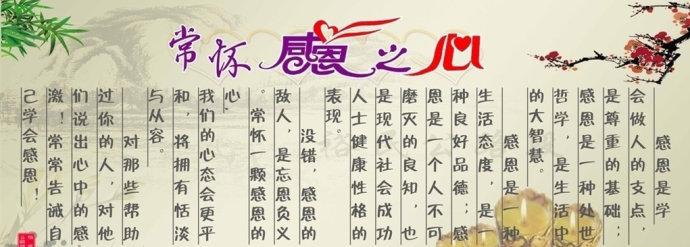 常怀感恩之心
感恩是学
会做人的支点，
是尊重的基础；
感恩是一种处世
哲学，是生活中
的大智慧。
感恩是一种
生活态度，是一
种良好品德，感
恩是一个人不可
磨灭的良知，也
是现代社会成功
人士健康性格的
表现。
没错，感恩的
敌人，是忘恩负义
。常怀一颗感恩的
心，
我们的心态会更平
和，将拥有恬淡
与从容。
对那些帮助
过你的人，对他
们说出心中的感
激！常常告诫自
己学会感恩！